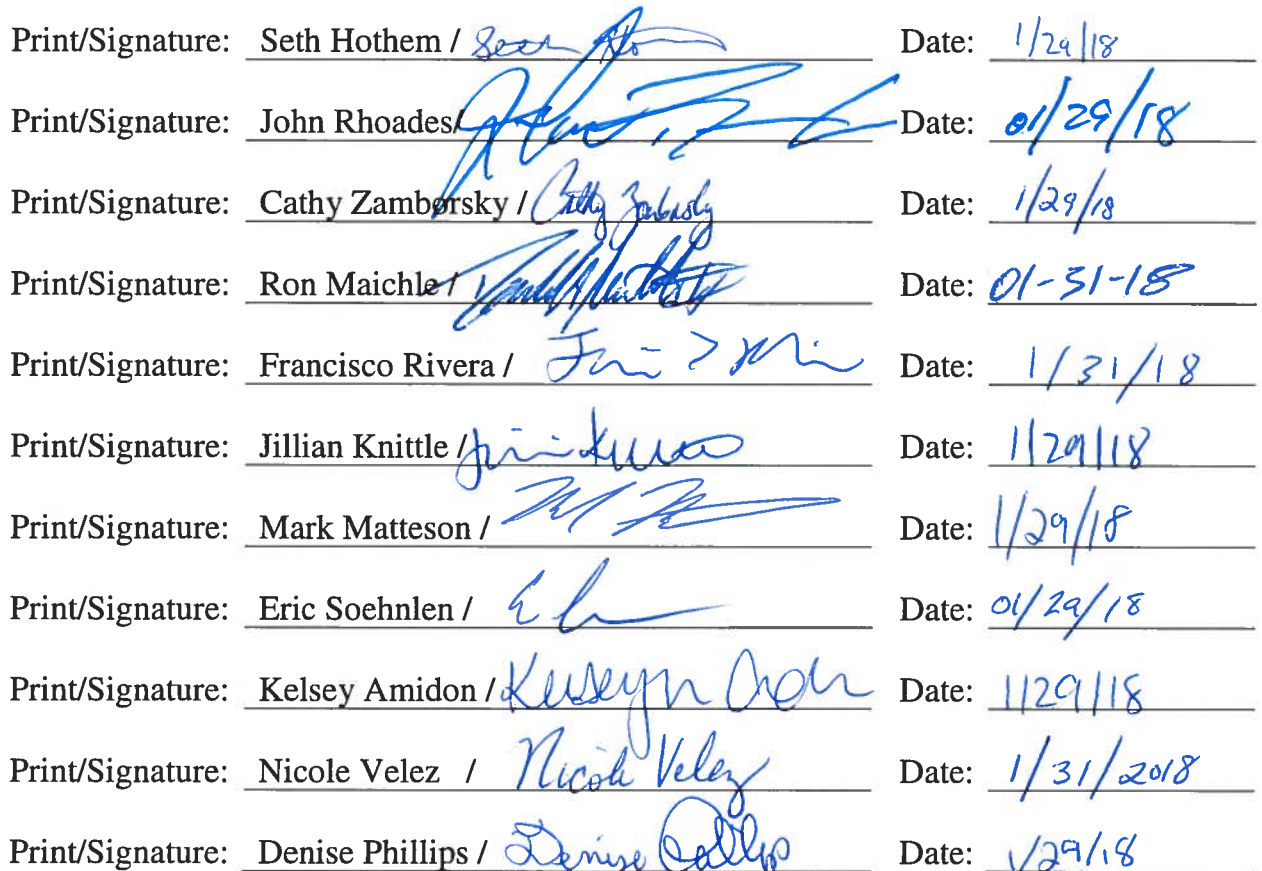 Print/Signature: Seth Hothem / Date: 1/29/18
Print/Signature: John Rhoades/ Date: 01/29/18
Print/Signature: Cathy Zamborsky / Cathy Zamborsky Date: 1/29/18
Print/Signature: Ron Maichle / Date: 01-31-18
Print/Signature: Francisco Rivera / Date: 1/31/18
Print/Signature: Jillian Knittle / Date: 1/29/18
Print/Signature: Mark Matteson / Date: 1/29/18
Print/Signature: Eric Soehnlen / Date: 01/29/18
Print/Signature: Kelsey Amidon / Date: 1/29/18
Print/Signature: Nicole Velez / Nicole Velez Date: 1/31/2018
Print/Signature: Denise Phillips / Denise Phillips Date: 1/29/18